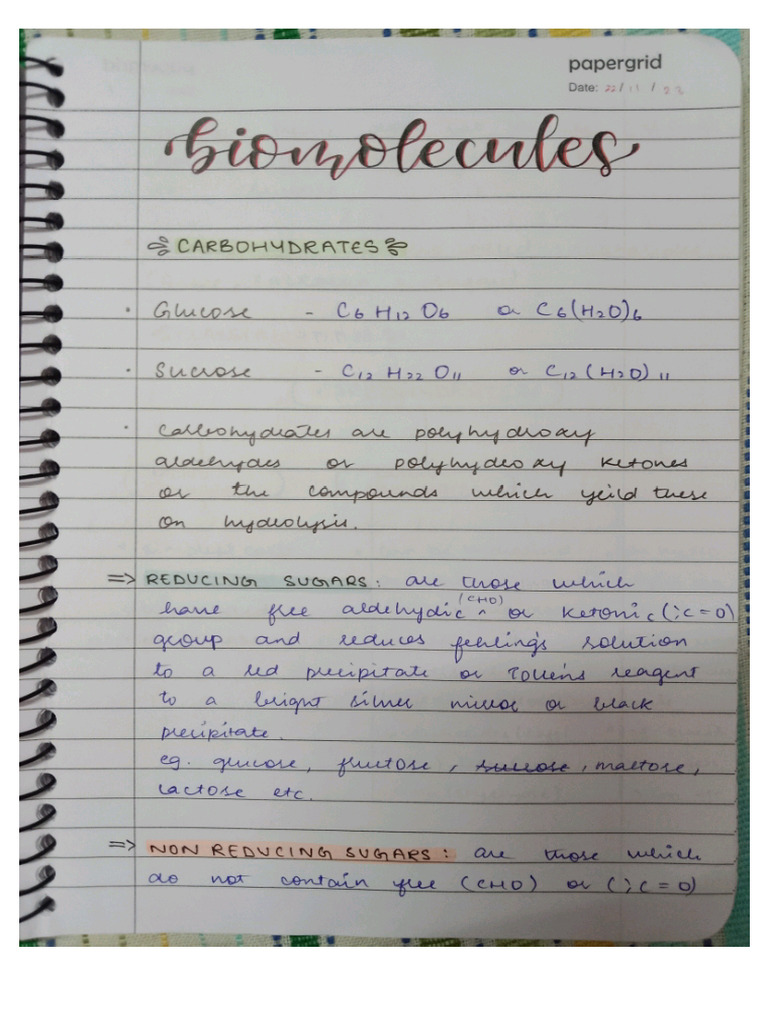 papergrid
Date: 22/11/23
biomolecules
CARBOHYDRATES
· Glucose - C6 H12 O6 or C6(H2O)6
· Sucrose - C12 H22 O11 or C12(H2O)11
· Carbohydrates are polyhydroxy
aldehydes or polyhydroxy ketones
or the compounds which yeild these
on hydrolysis.
=> REDUCING SUGARS: are those which
(CHO)
have free aldehydic ^ or ketonic (;C=O)
group and reduces fehling's solution
to a red precipitate or Tollen's reagent
to a bright silver mirror or black
precipitate.
eg. glucose, fructose, sucrose, maltose,
lactose etc.
=> NON REDUCING SUGARS: are those which
do not contain free (CHO) or (;C=O)